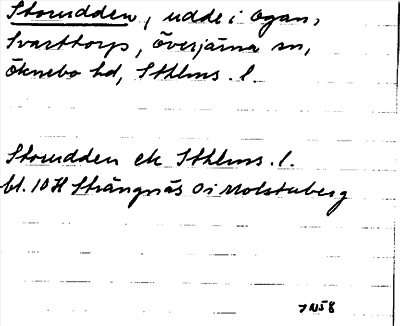 Storudden, udde i Ogan,
Svarttorp, Överjärna sn,
Öknebo hd, Sthlms. l.
Storudden ek Sthlms. l.
bl. 10 H Strängnäs Oi Mölstaberg